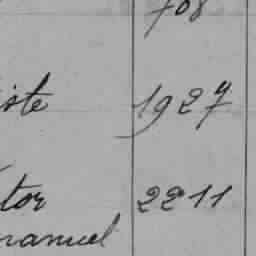 708
iste 1927
tor 2211
manuel